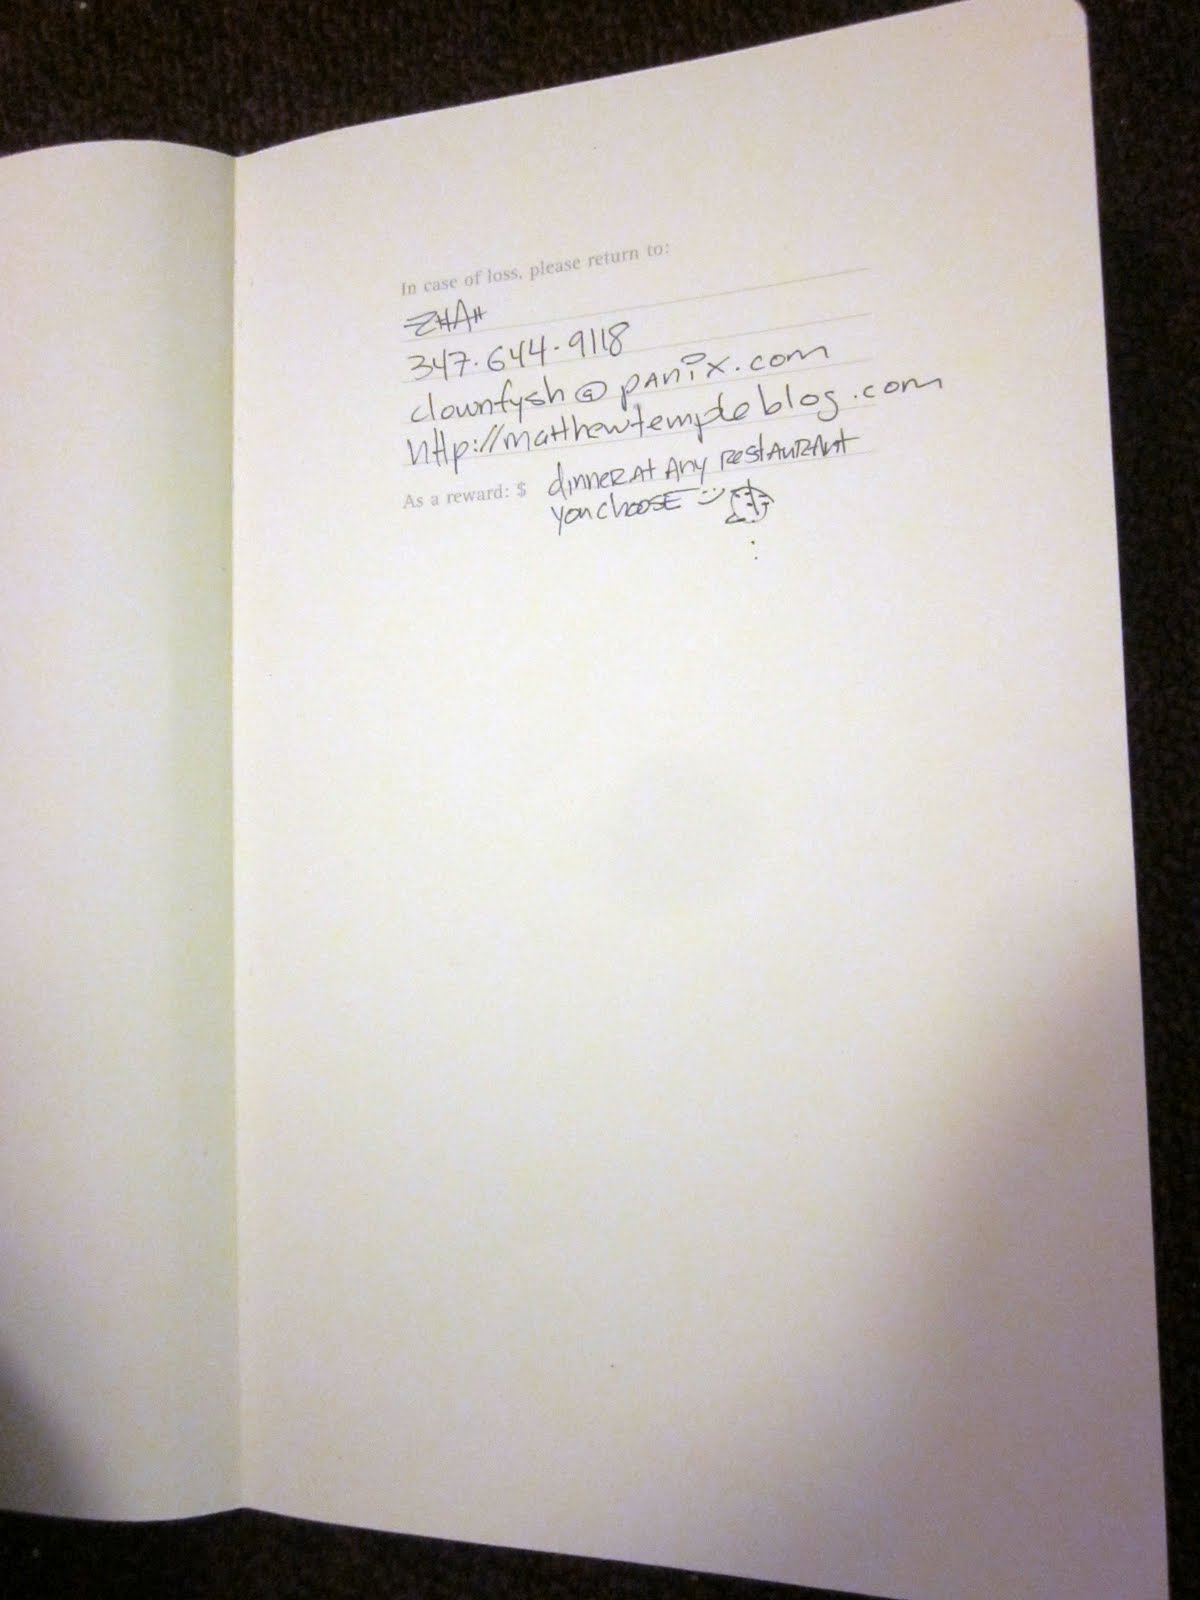 In case of loss, please return to:
347.644.9118
clownfysh@panix.com
http://matthewtempleblog.com
As a reward: $ dinner at any restaurant
you choose :)